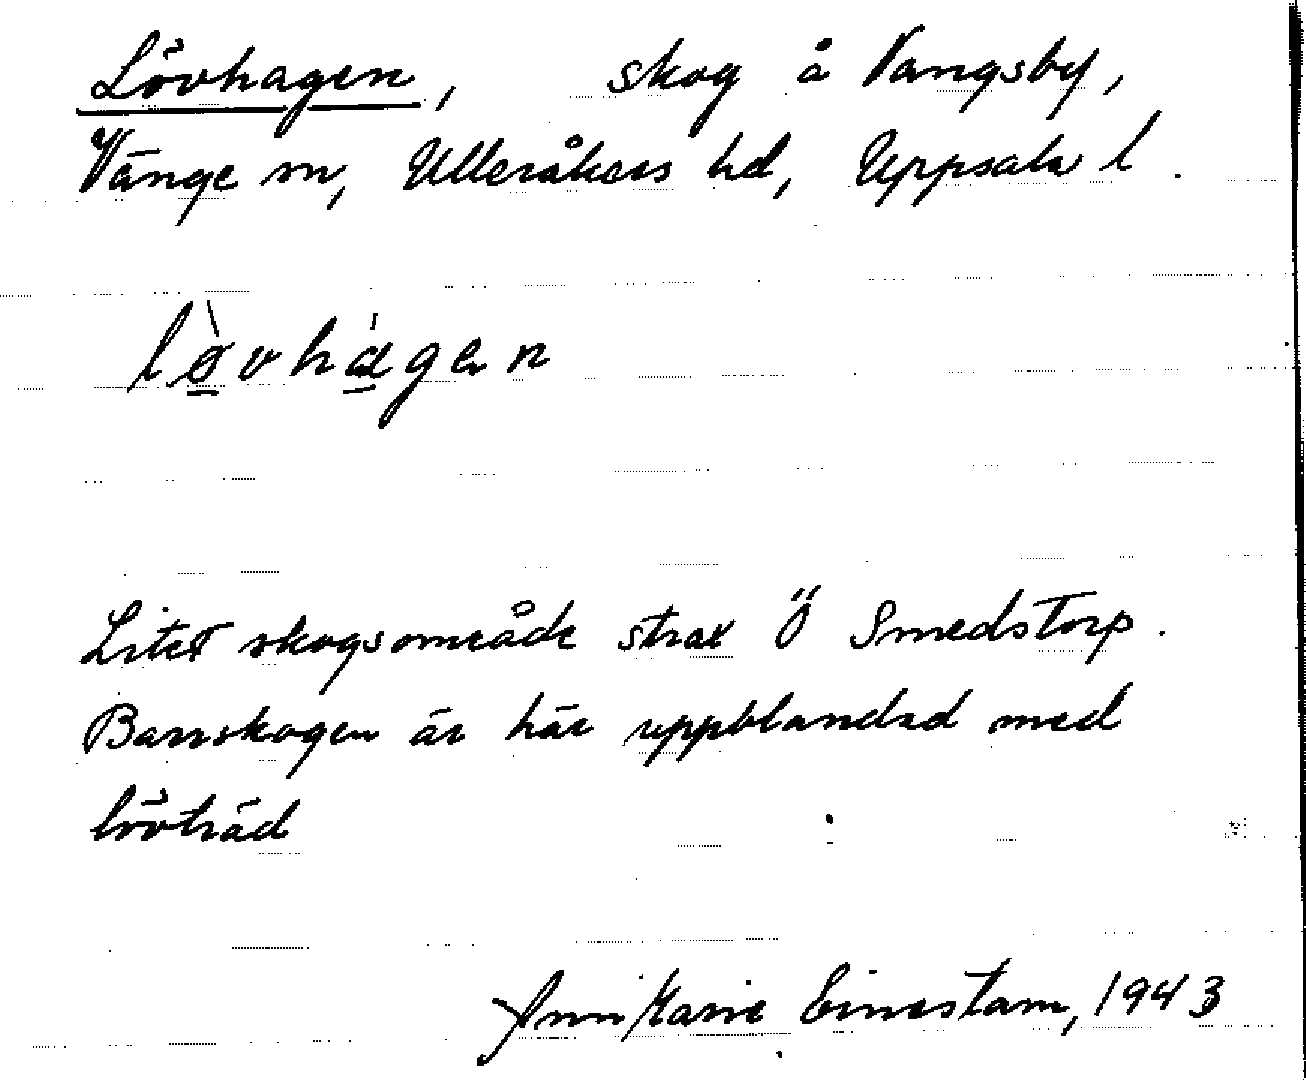 Lövhagen, skog å Vängsby,
Vänge sn, Ulleråkers hd, Uppsala l.
lø̀vhágen
Litet skogsområde strax Ö Smedstorp.
Barrskogen är här uppblandad med
lövträd
Ann Marie Einestam, 1943